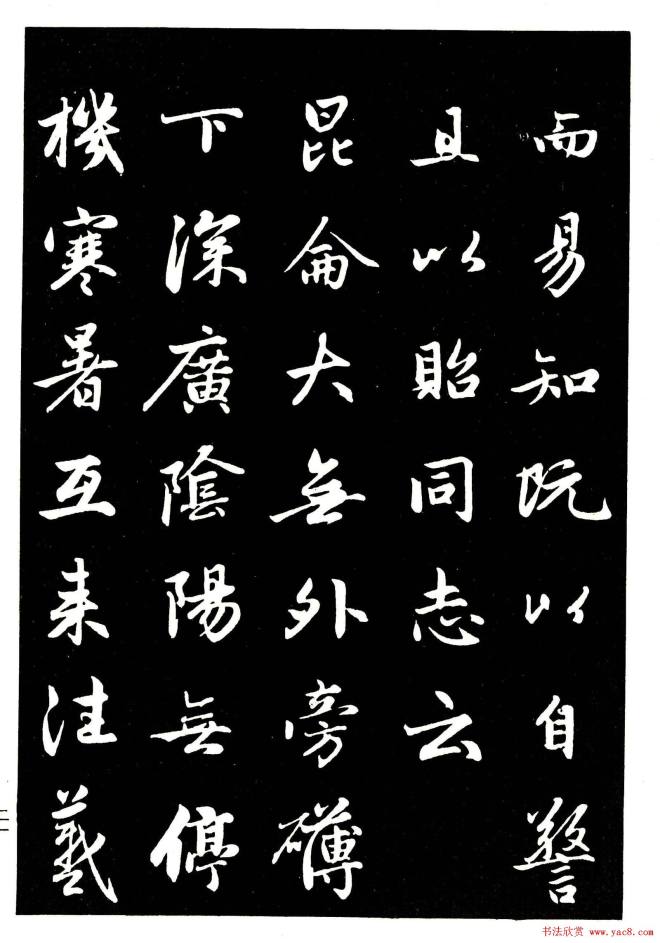 而易知既以自警
且以貽同志云
昆侖大無外旁礴
下深廣陰陽無停
機寒暑互来往羲
二
书法欣赏 www.yac8.com